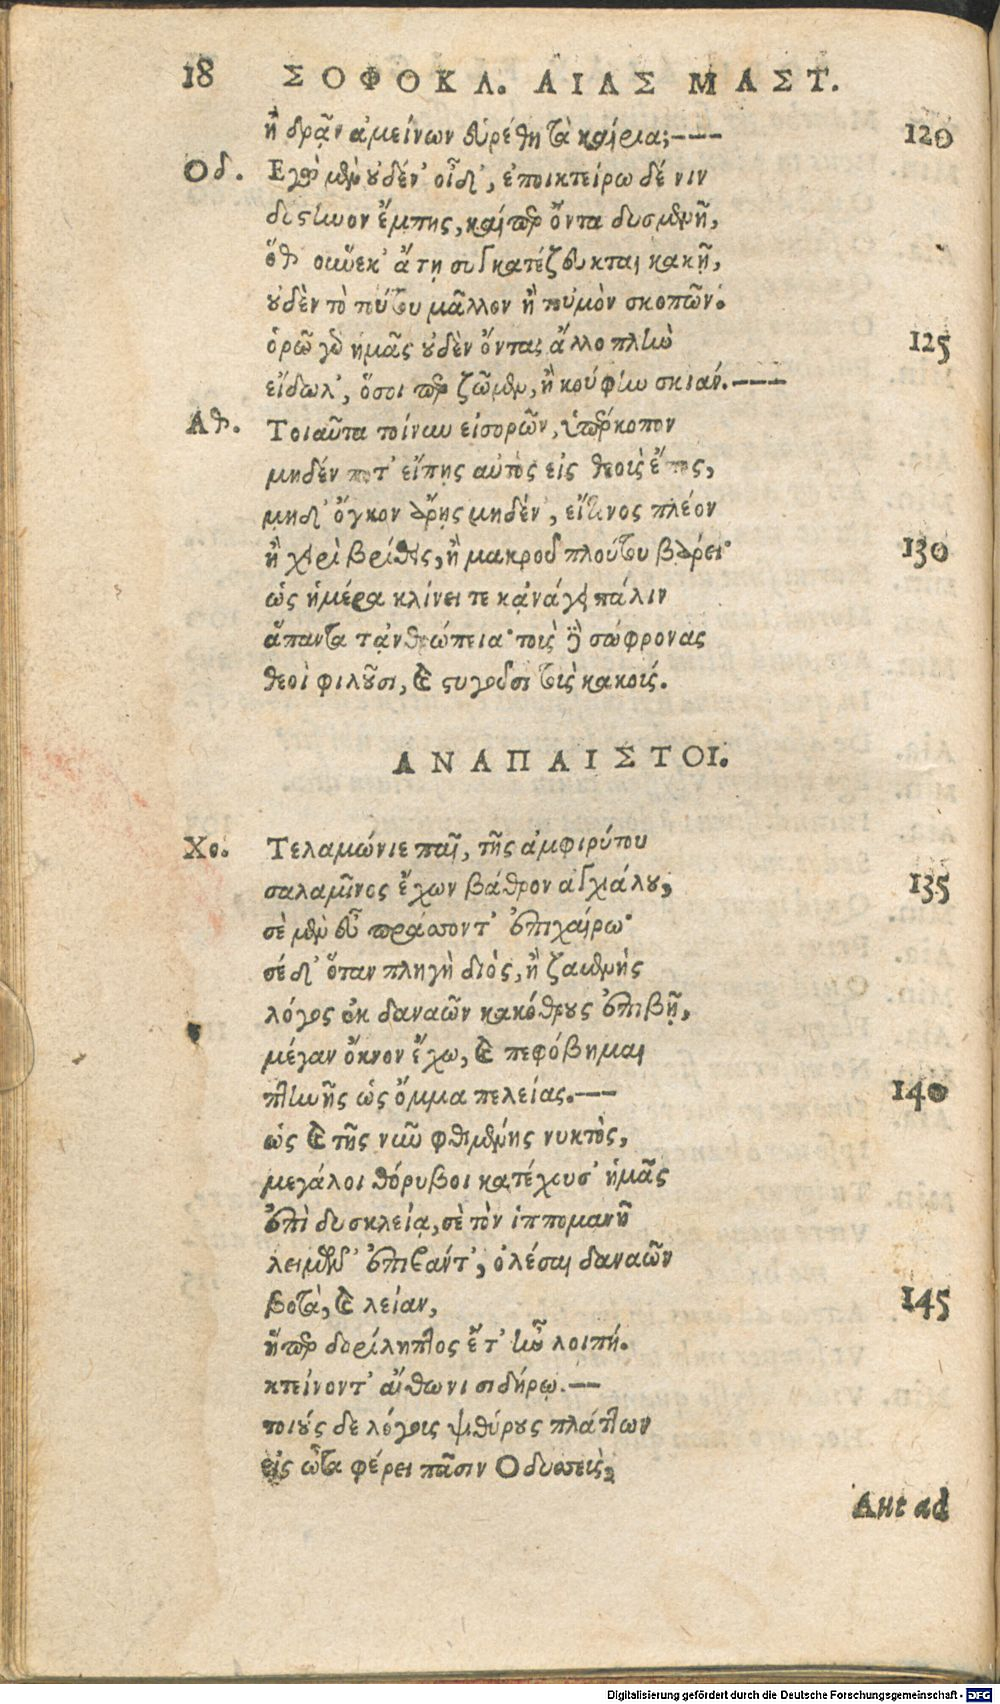 18 ΣΟΦΟΚΛ. ΑΙΑΣ ΜΑΣΤ.
ἢ δρᾷν ἀμείνων εὑρέθη τὰ καίρια;--- 120
Οδ. Εγὼ μὲν οὐδέν' οἶδ', ἐποικτείρω δέ νιν
δύστηνον ἔμπης, καίπερ ὄντα δυσμενῆ,
ὅθ' οὕνεκ' ἄτῃ συγκατέζευκται κακῇ,
οὐδὲν τὸ τούτου μᾶλλον ἢ τοὐμὸν σκοπῶν·
ὁρῶ γὰρ ἡμᾶς οὐδὲν ὄντας ἄλλο πλὴν 125
εἴδωλ', ὅσοι περ ζῶμεν, ἢ κούφην σκιάν.---
Αθ. Τοιαῦτα τοίνυν εἰσορῶν, ὑπέρκοπον
μηδέν ποτ' εἴπῃς αὐτὸς εἰς θεοὺς ἔπος,
μηδ' ὄγκον ἄρῃς μηδέν', εἴ τινος πλέον
ἢ χειρὶ βρίθεις, ἢ μακροῦ πλούτου βάρει· 130
ὡς ἡμέρα κλίνει τε κἀνάγει πάλιν
ἅπαντα τἀνθρώπεια· τοὺς δὲ σώφρονας
θεοὶ φιλοῦσι, καὶ στυγοῦσι τοὺς κακούς.
ΑΝΑΠΑΙΣΤΟΙ.
Χο. Τελαμώνιε παῖ, τῆς ἀμφιρύτου
σαλαμῖνος ἔχων βάθρον ἀγχιάλου, 135
σὲ μὲν εὖ πράσσοντ' ἐπιχαίρω·
σέ δ' ὅταν πληγὴ διὸς, ἢ ζαμενὴς
λόγος ἐκ δαναῶν κακόθρους ἐπιβῇ,
μέγαν ὄκνον ἔχω, καὶ πεφόβημαι
πτηνῆς ὡς ὄμμα πελείας.--- 140
ὡς καὶ τῆς νῦν φθιμένης νυκτὸς,
μεγάλοι θόρυβοι κατέχουσ' ἡμᾶς
ἐπὶ δυσκλείᾳ, σὲ τὸν ἱππομανῆ
λειμῶν' ἐπιβάντ', ὀλέσαι δαναῶν
βοτὰ, καὶ λείαν, 145
ἥπερ δορίληπτος ἔτ' ἦν λοιπή.
κτείνοντ' αἴθωνι σιδήρῳ.--
τοιούς δε λόγους ψιθύρους πλάττων
εἰς ὦτα φέρει πᾶσιν Οδυσσεὺς,
Aut ad
Digitalisierung gefördert durch die Deutsche Forschungsgemeinschaft - DFG